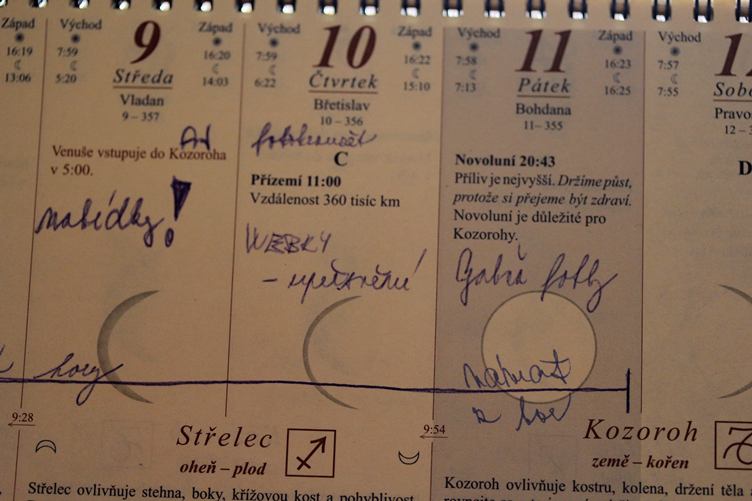 Západ
16:19
13:06
Východ
7:59
5:20
9
Středa
Vladan
9 – 357
Západ
16:20
14:03
Venuše vstupuje do Kozoroha
v 5:00.
nabídky!
hory
Východ
7:59
6:22
10
Čtvrtek
Břetislav
10 – 356
Západ
16:22
15:10
C
Přízemí 11:00
Vzdálenost 360 tisíc km
WEBKY
Východ
7:58
7:13
11
Pátek
Bohdana
11– 355
Západ
16:23
16:25
Novoluní 20:43
Příliv je nejvyšší. Držíme půst,
protože si přejeme být zdraví.
Novoluní je důležité pro
Kozorohy.
návrat
z hor
Východ
7:57
7:55
9:28
Střelec
oheň – plod
Střelec ovlivňuje stehna, boky, křížovou kost a pohyblivost
9:54
Kozoroh
země – kořen
Kozoroh ovlivňuje kostru, kolena, držení těla